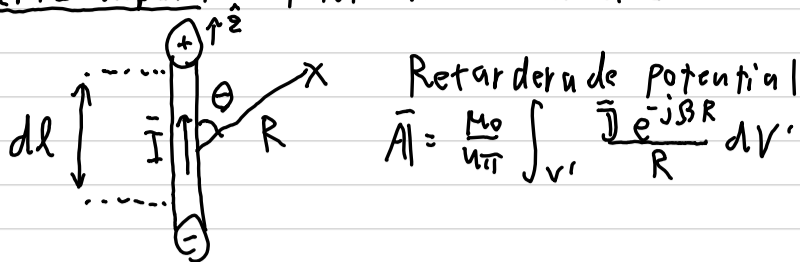 + ↑ ẑ
θ x
dl Ī R
Retarderade potential
Ā = μ₀/4π ∫_V' J̄ e^{-jβR}/R dV'
-